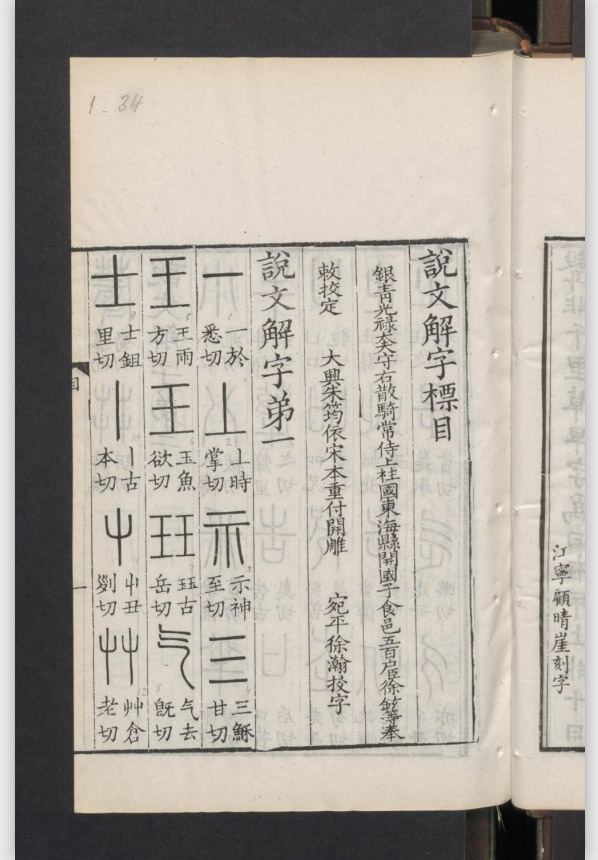 1-34
江寧顧晴崖刻字
說文解字標目
銀青光祿大夫守右散騎常侍上柱國東海縣開國子食邑五百戶臣徐鉉等奉
敕挍定 大興朱筠依宋本重付開雕 宛平徐瀚挍字
說文解字弟一
一 一於悉切 丄 丄時掌切 示 示神至切 三 三穌甘切
王 王雨方切 玉 玉魚欲切 玨 玨古岳切 气 气去旣切
士 士鉏里切 丨 丨古本切 屮 屮丑列切 艸 艸倉老切
目
一